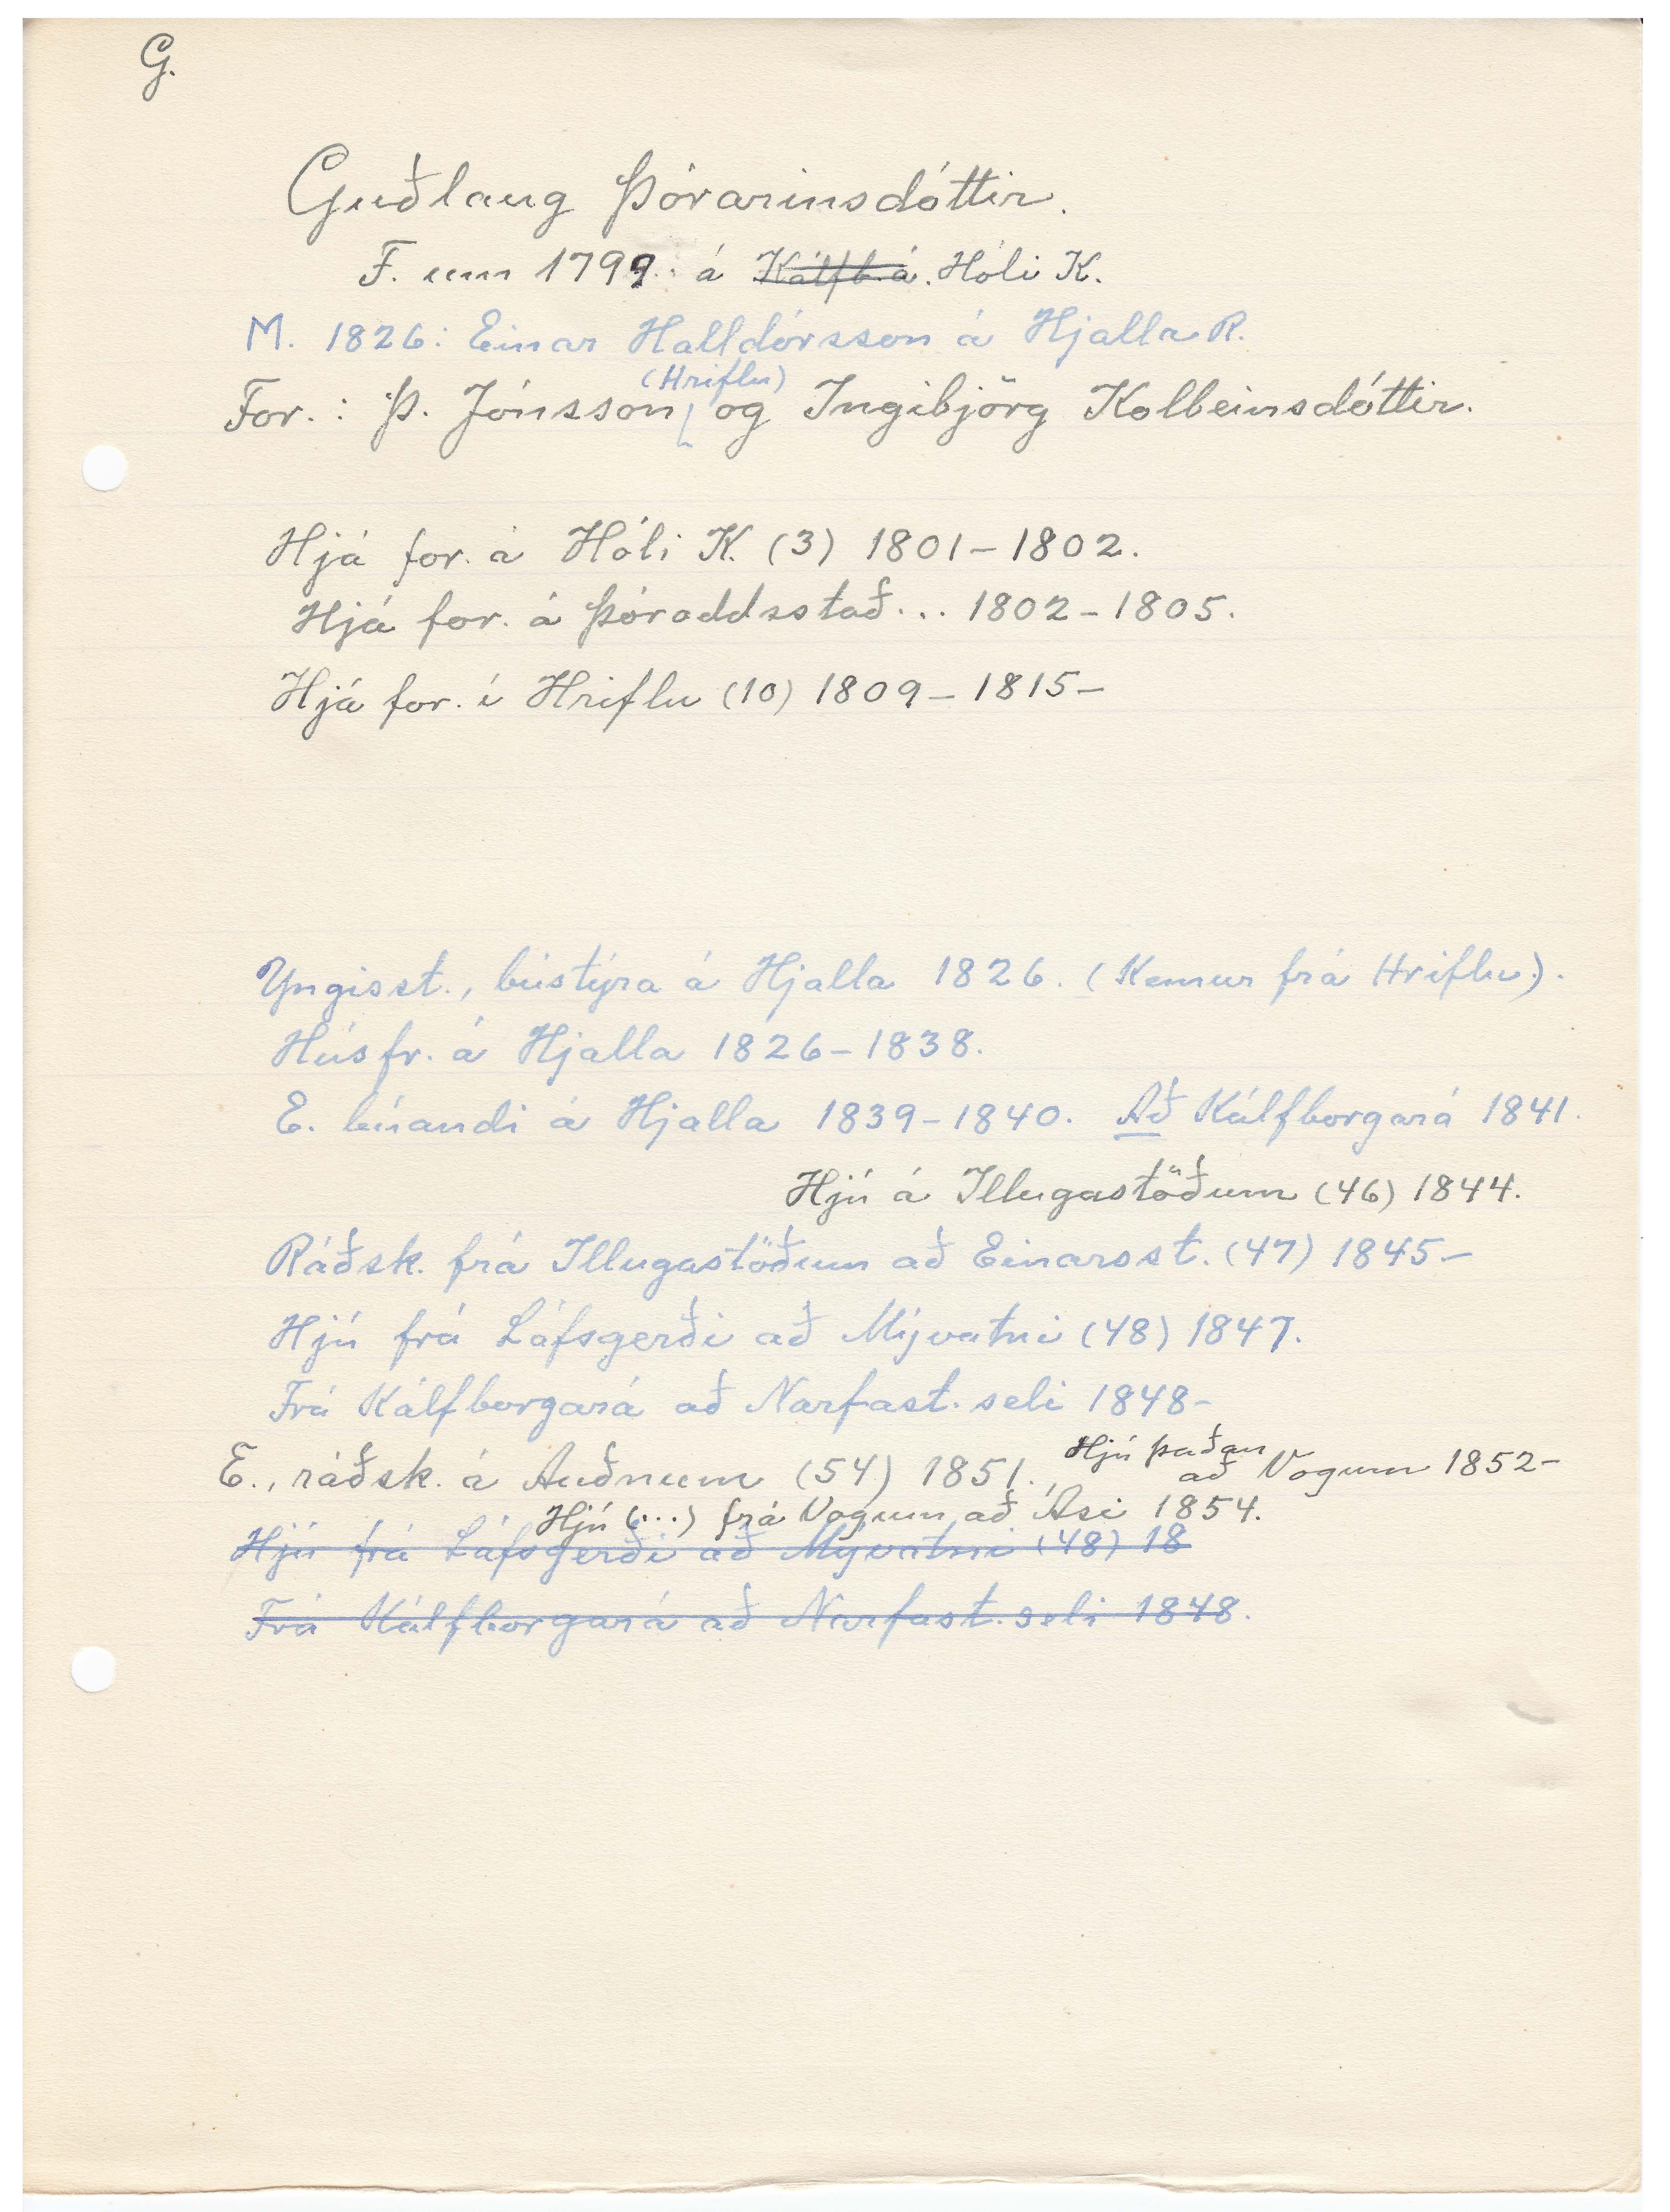 G.
Guðlaug Þórarinsdóttir.
F. um 1799. á Kálfb.á. Hóli K.
M. 1826: Einar Halldórsson á Hjalla R.
(Hriflu)
For.: Þ. Jónsson, og Ingibjörg Kolbeinsdóttir.
Hjá for. á Hóli K. (3) 1801-1802.
Hjá for. á Þóroddsstað ... 1802-1805.
Hjá for. í Hriflu (10) 1809-1815-
Yngisst., bústýra á Hjalla 1826. (Kemur frá Hriflu).
Húsfr. á Hjalla 1826-1838.
E. búandi á Hjalla 1839-1840. Að Kálfborgará 1841.
Hjú á Illugastöðum (46) 1844.
Ráðsk. frá Illugastöðum að Einarsst. (47) 1845-
Hjú frá Láfsgerði að Mývatni (48) 1847.
Frá Kálfborgará að Narfast.seli 1848-
E., ráðsk. á Auðnum (54) 1851., Hjú þaðan að Vogum 1852-
Hjú (...) frá Vogum að Ási 1854.
Hjú frá Láfsgerði að Mývatni (48) 18
Frá Kálfborgará að Narfast.seli 1848.